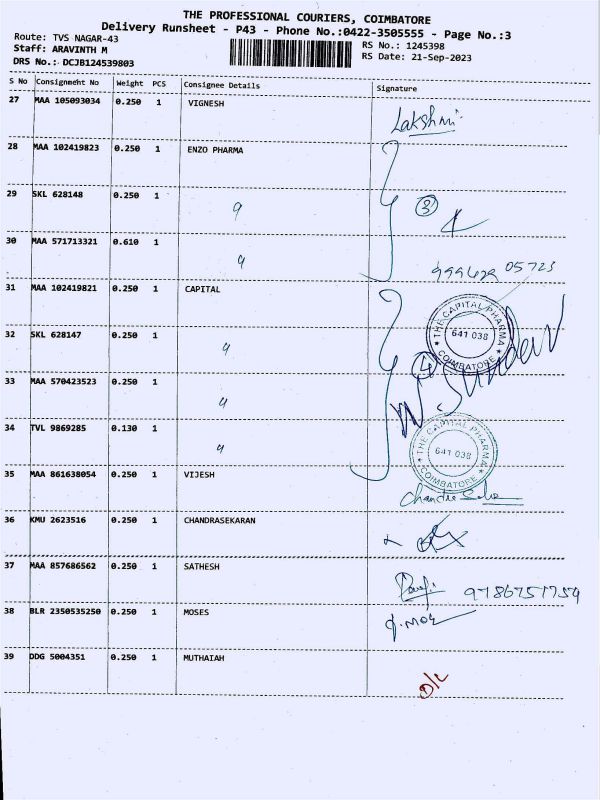 THE PROFESSIONAL COURIERS, COIMBATORE
Delivery Runsheet - P43 - Phone No.:0422-3505555 - Page No.:3
Route: TVS NAGAR-43 RS No.: 1245398
Staff: ARAVINTH M RS Date: 21-Sep-2023
DRS No.: DCJB124539803
S No Consignment No Weight PCS Consignee Details Signature
27 MAA 105093034 0.250 1 VIGNESH
Lakshmi
28 MAA 102419823 0.250 1 ENZO PHARMA
29 SKL 628148 0.250 1 3
30 MAA 571713321 0.610 1
05723
31 MAA 102419821 0.250 1 CAPITAL
THE CAPITAL PHARMA
641 038
COIMBATORE
32 SKL 628147 0.250 1
4
33 MAA 570423523 0.250 1
34 TVL 9869285 0.130 1
THE CAPITAL PHARMA
641 038
COIMBATORE
35 MAA 861638054 0.250 1 VIJESH
36 KMU 2623516 0.250 1 CHANDRASEKARAN
37 MAA 857686562 0.250 1 SATHESH
9786757759
38 BLR 2350535250 0.250 1 MOSES
39 DDG 5004351 0.250 1 MUTHAIAH
D/L